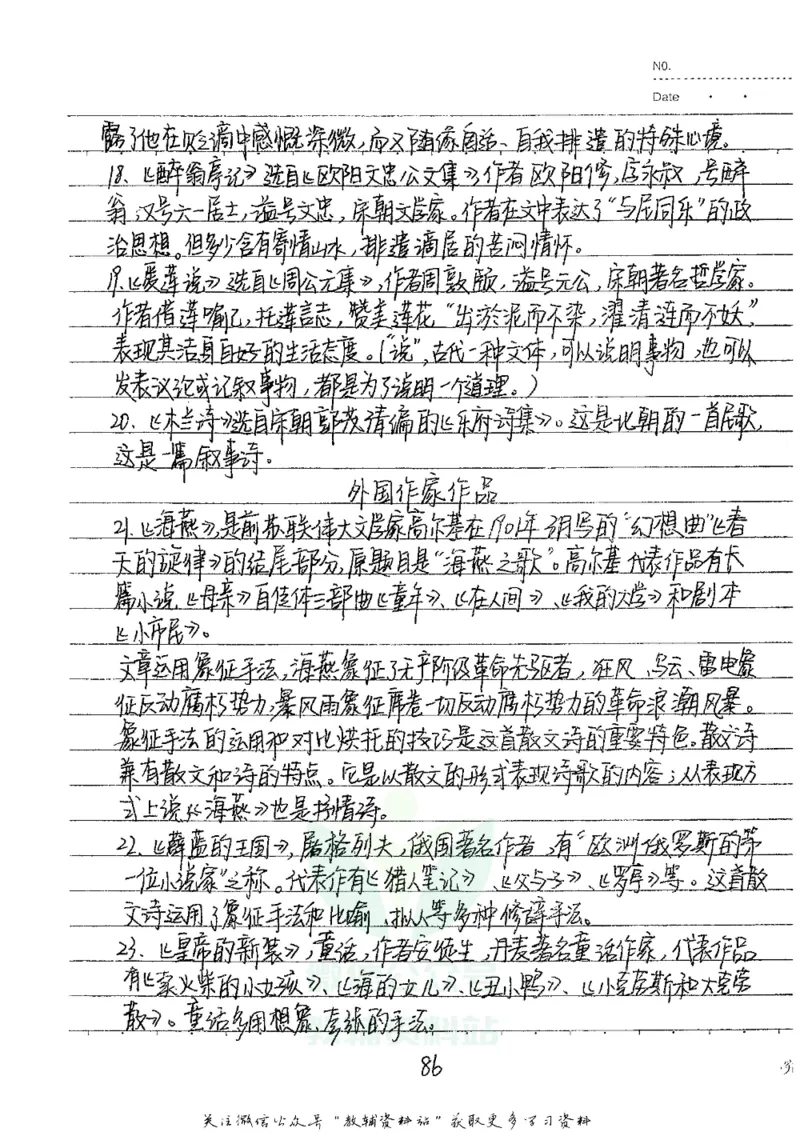 NO.
Date
露了他在贬谪中感慨深微,而又随缘自适、自我排遣的特殊心境。
18.《醉翁亭记》选自《欧阳文忠公文集》,作者欧阳修,字永叔,号醉
翁,又号六一居士,谥号文忠,宋朝文学家。作者在文中表达了“与民同乐”的政
治思想。但多少含有寄情山水,排遣谪居的苦闷情怀。
19.《爱莲说》选自《周公元集》,作者周敦颐,谥号元公,宋朝著名哲学家。
作者借莲喻己,托莲言志,赞美莲花“出淤泥而不染,濯清涟而不妖”,
表现其洁身自好的生活态度。(“说”,古代一种文体,可以说明事物,也可以
发表议论或记叙事物,都是为了说明一个道理。)
20.《木兰诗》选自宋朝郭茂倩编的《乐府诗集》。这是北朝的一首民歌,
这是一篇叙事诗。
外国作家作品
21.《海燕》,是前苏联伟大文学家高尔基在1901年3月写的“幻想曲”《春
天的旋律》的结尾部分,原题目是“海燕之歌”。高尔基代表作品有长
篇小说《母亲》自传体三部曲《童年》、《在人间》、《我的大学》和剧本
《小市民》。
文章运用象征手法,海燕象征了无产阶级革命先驱者,狂风、乌云、雷电象
征反动腐朽势力,暴风雨象征席卷一切反动腐朽势力的革命浪潮风暴。
象征手法的运用和对比烘托的技巧是这首散文诗的重要特色。散文诗
兼有散文和诗的特点。它是以散文的形式表现诗歌的内容;从表现方
式上说《海燕》也是抒情诗。
22.《蔚蓝的王国》,屠格列夫,俄国著名作者,有“欧洲俄罗斯的第
一位小说家”之称。代表作有《猎人笔记》、《父与子》、《罗亭》等。这首散
文诗运用了象征手法和比喻、拟人等多种修辞手法。
23.《皇帝的新装》,童话,作者安徒生,丹麦著名童话作家,代表作品
有《卖火柴的小女孩》、《海的女儿》、《丑小鸭》、《小克劳斯和大克劳
散》。童话多用想象、夸张的手法。
86
关注微信公众号“教辅资料站”获取更多学习资料